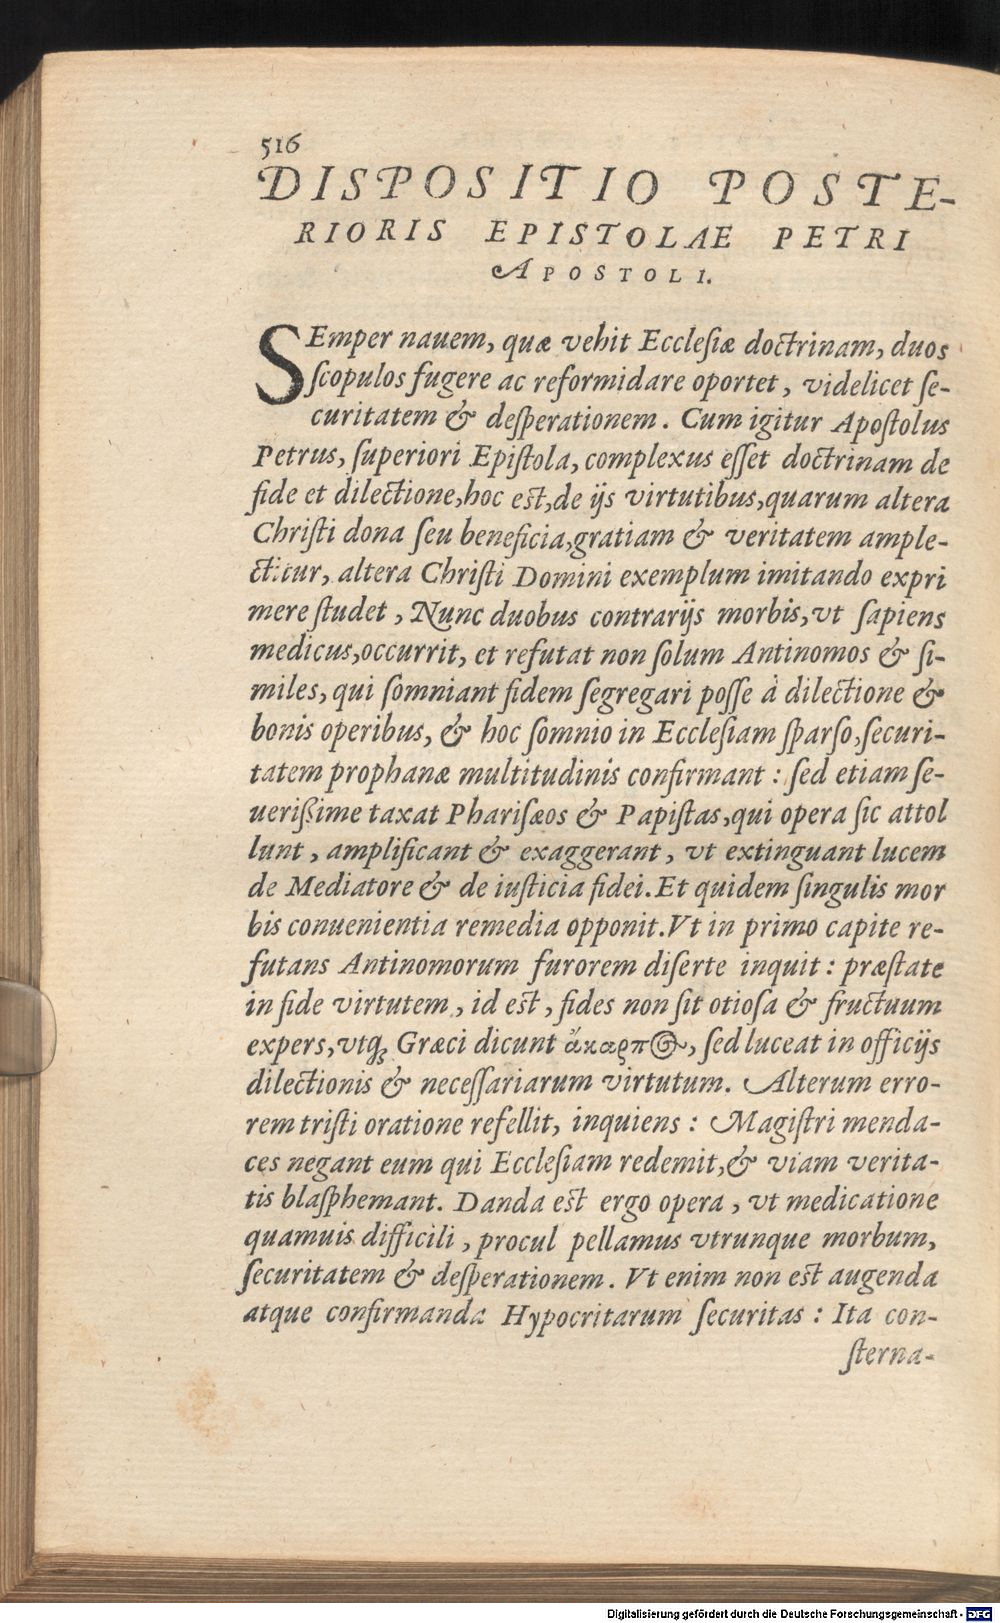 516
DISPOSITIO POSTE-
RIORIS EPISTOLAE PETRI
APOSTOLI.
SEmper nauem, quæ vehit Ecclesiæ doctrinam, duos
scopulos fugere ac reformidare oportet, videlicet se-
curitatem & desperationem. Cum igitur Apostolus
Petrus, superiori Epistola, complexus esset doctrinam de
fide et dilectione,hoc est,de ijs virtutibus,quarum altera
Christi dona seu beneficia,gratiam & veritatem ample-
ctitur, altera Christi Domini exemplum imitando expri
mere studet, Nunc duobus contrarijs morbis,vt sapiens
medicus,occurrit, et refutat non solum Antinomos & si-
miles, qui somniant fidem segregari posse à dilectione &
bonis operibus, & hoc somnio in Ecclesiam sparso,securi-
tatem prophanæ multitudinis confirmant : sed etiam se-
uerißime taxat Pharisæos & Papistas,qui opera sic attol
lunt, amplificant & exaggerant, vt extinguant lucem
de Mediatore & de iusticia fidei.Et quidem singulis mor
bis conuenientia remedia opponit.Vt in primo capite re-
futans Antinomorum furorem diserte inquit : præstate
in fide virtutem, id est, fides non sit otiosa & fructuum
expers,vtq; Græci dicunt ἄκαρπος, sed luceat in officijs
dilectionis & necessariarum virtutum. Alterum erro-
rem tristi oratione refellit, inquiens : Magistri menda-
ces negant eum qui Ecclesiam redemit,& viam verita-
tis blasphemant. Danda est ergo opera, vt medicatione
quamuis difficili, procul pellamus vtrunque morbum,
securitatem & desperationem. Vt enim non est augenda
atque confirmanda Hypocritarum securitas : Ita con-
sterna-
Digitalisierung gefördert durch die Deutsche Forschungsgemeinschaft - DFG